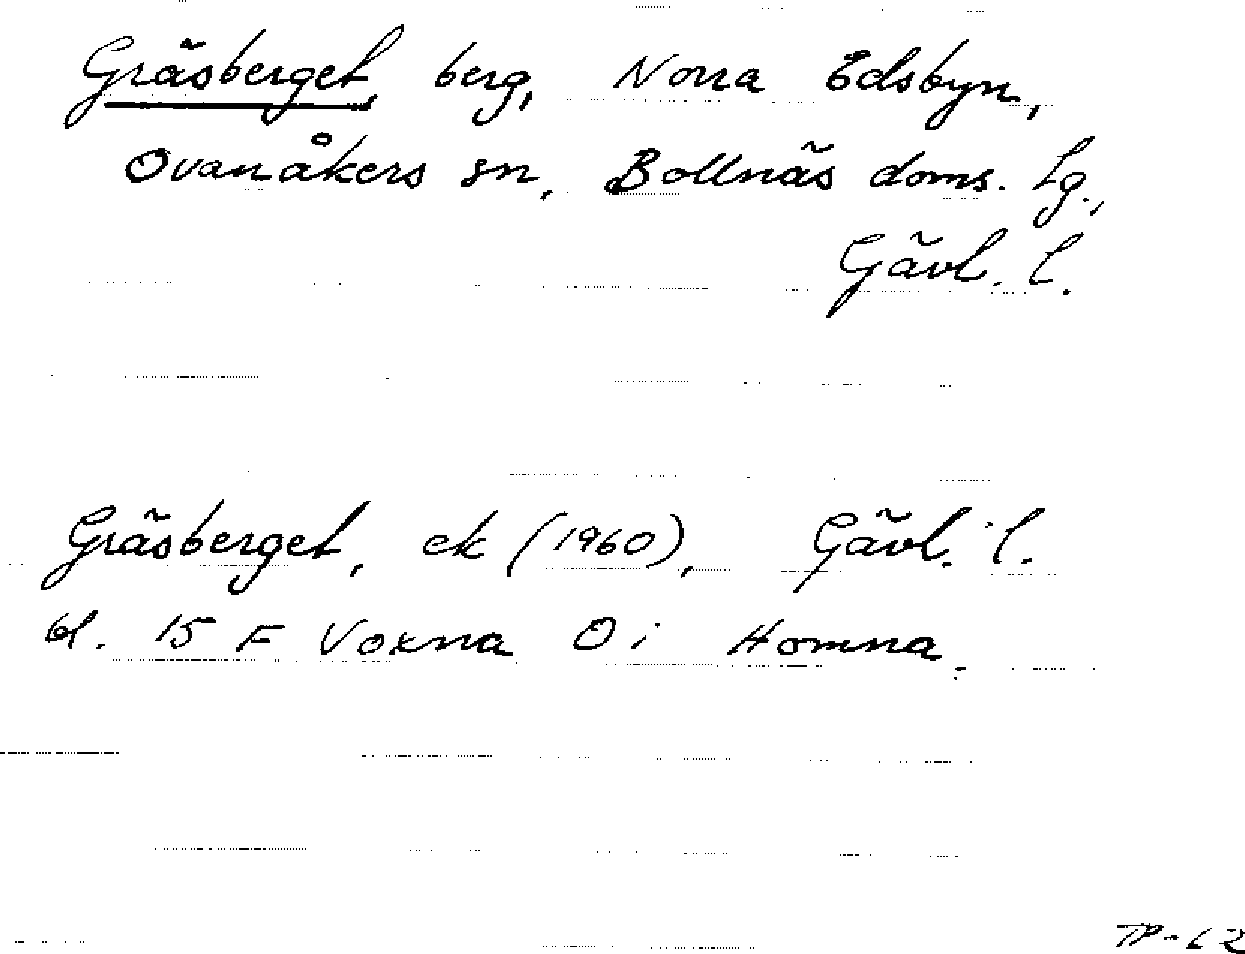 Gräsberget, berg, Norra Edsbyn,
Ovanåkers sn, Bollnäs doms. lg.,
Gävl. l.
Gräsberget, ek (1960), Gävl. l.
bl. 15 F Voxna O i Homna.
TP-62